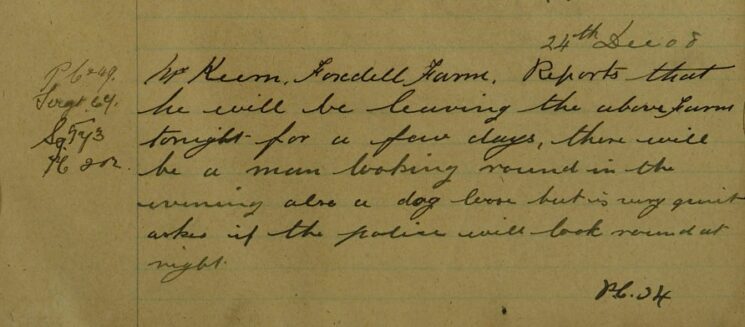 24th Dec 08
Mr Keem, Foxdell Farm. Reports that
he will be leaving the above Farm
tonight for a few days, there will
be a man looking round in the
evening also a dog loose but is very quiet
asks if the police will look round at
night.
P.C. 34
P.C. 49.
Sergt. 64.
Sgt 43
P.C. 202.